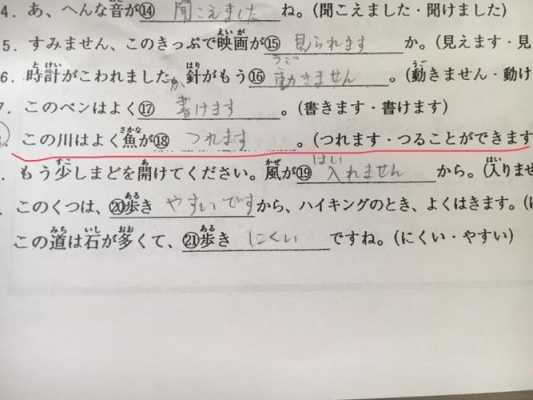 4. あ、へんな音が⑭聞こえましたね。(聞こえました・聞けました)
5. すみません、このきっぷで映画が⑮見られますか。(見えます・見
6. 時計がこわれましたか、針がもう⑯動きません。(動きません・動け
7. このペンはよく⑰書けます。(書きます・書けます)
この川はよく魚が⑱つれます。(つれます・つることができます
. もう少しまどを開けてください。風が⑲入れませんから。(入りませ
. このくつは、⑳歩きやすいですから、ハイキングのとき、よくはきます。(に
この道は石が多くて、㉑歩きにくいですね。(にくい・やすい)